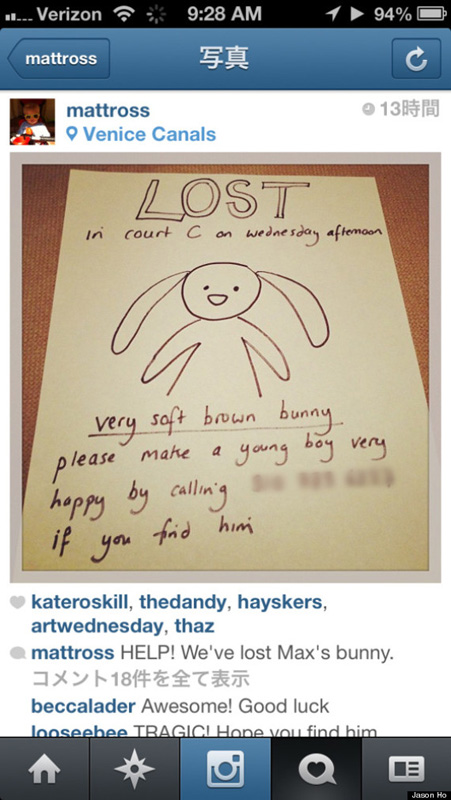 Verizon 9:28 AM 94%
mattross
写真
mattross
13時間
Venice Canals
LOST
In court C on wednesday afternoon
very soft brown bunny
please make a young boy very
happy by calling
if you find him
kateroskill, thedandy, hayskers,
artwednesday, thaz
mattross HELP! We've lost Max's bunny.
コメント18件を全て表示
beccalader Awesome! Good luck
looseebee TRAGIC! Hope you find him
Jason Ho